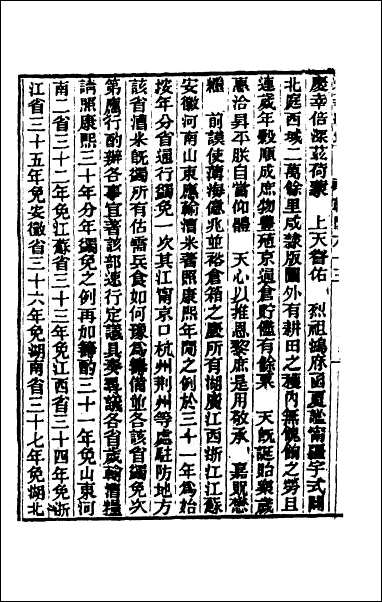 慶幸倍深茲荷蒙　上天眷佑　烈祖鴻庥函夏謐甯疆宇式闢
北庭西域二萬餘里咸隸版圖外有耕田之穫內無餽餉之勞且
連歲年穀順成庶物豐殖京通倉貯儘有餘粟　天旣誕貽樂歲
惠洽昇平朕自當仰體　天心以推恩黎庶是用敬承　嘉貺懋
繼　前謨使薄海億兆並裕倉箱之慶所有湖廣江西浙江江蘇
安徽河南山東應輸漕米著照康熙年閒之例於三十一年為始
按年分省通行蠲免一次其江南京口杭州荆州等處駐防地方
該省漕米旣蠲所有估需兵食如何豫為籌備並各該省蠲免次
第應行酌辦各事宜著該部速行定議具奏尋議各省歲輸漕糧
請照康熙三十年分年蠲免之例再加籌酌三十一年免山東河
南二省三十二年免江蘇省三十三年免江西省三十四年免浙
江省三十五年免安徽省三十六年免湖南省三十七年免湖北